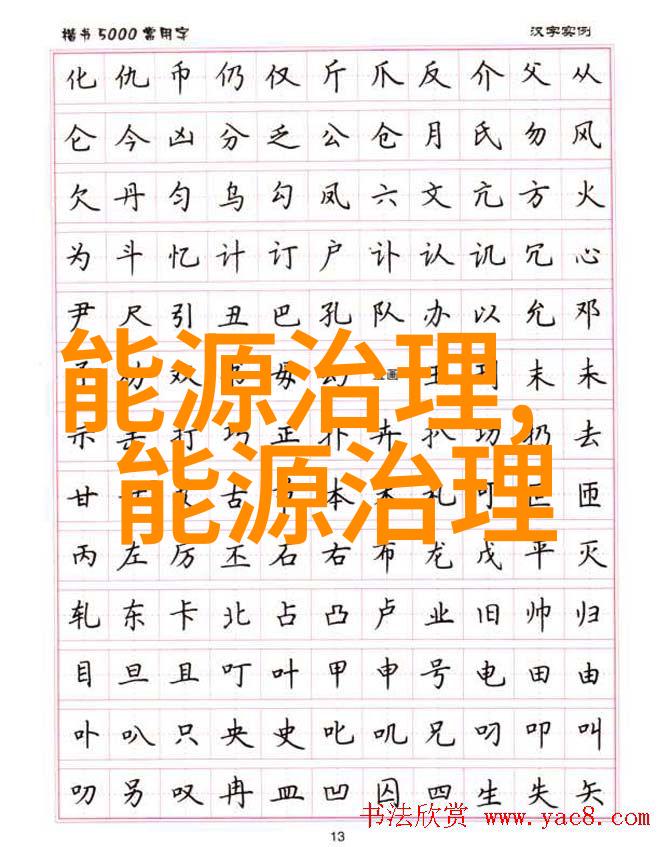 楷书5000常用字 汉字实例
化仇币仍仅斤爪反介父从
仑今凶分乏公仓月氏勿风
欠丹匀乌勾凤六文亢方火
为斗忆计订户讣认讥冗心
尹尺引丑巴孔队办以允邓
毋 五画 玉刊末未
示击打巧正扑卉扒切扔去
甘 古 本 札可匹匝
丙左厉丕石右布龙戊平灭
轧东卡北占凸卢业旧帅归
目旦且叮叶甲申号电田由
卟叭只央史叱叽兄叼叩叫
叻另叹冉皿凹囚四生失矢
能源治理,
能源治理
书法欣赏 www.yac8.com
13